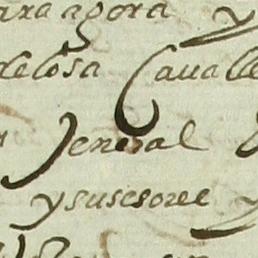 ara agora y
relosa Cavalle
Jeneral
y susesores y